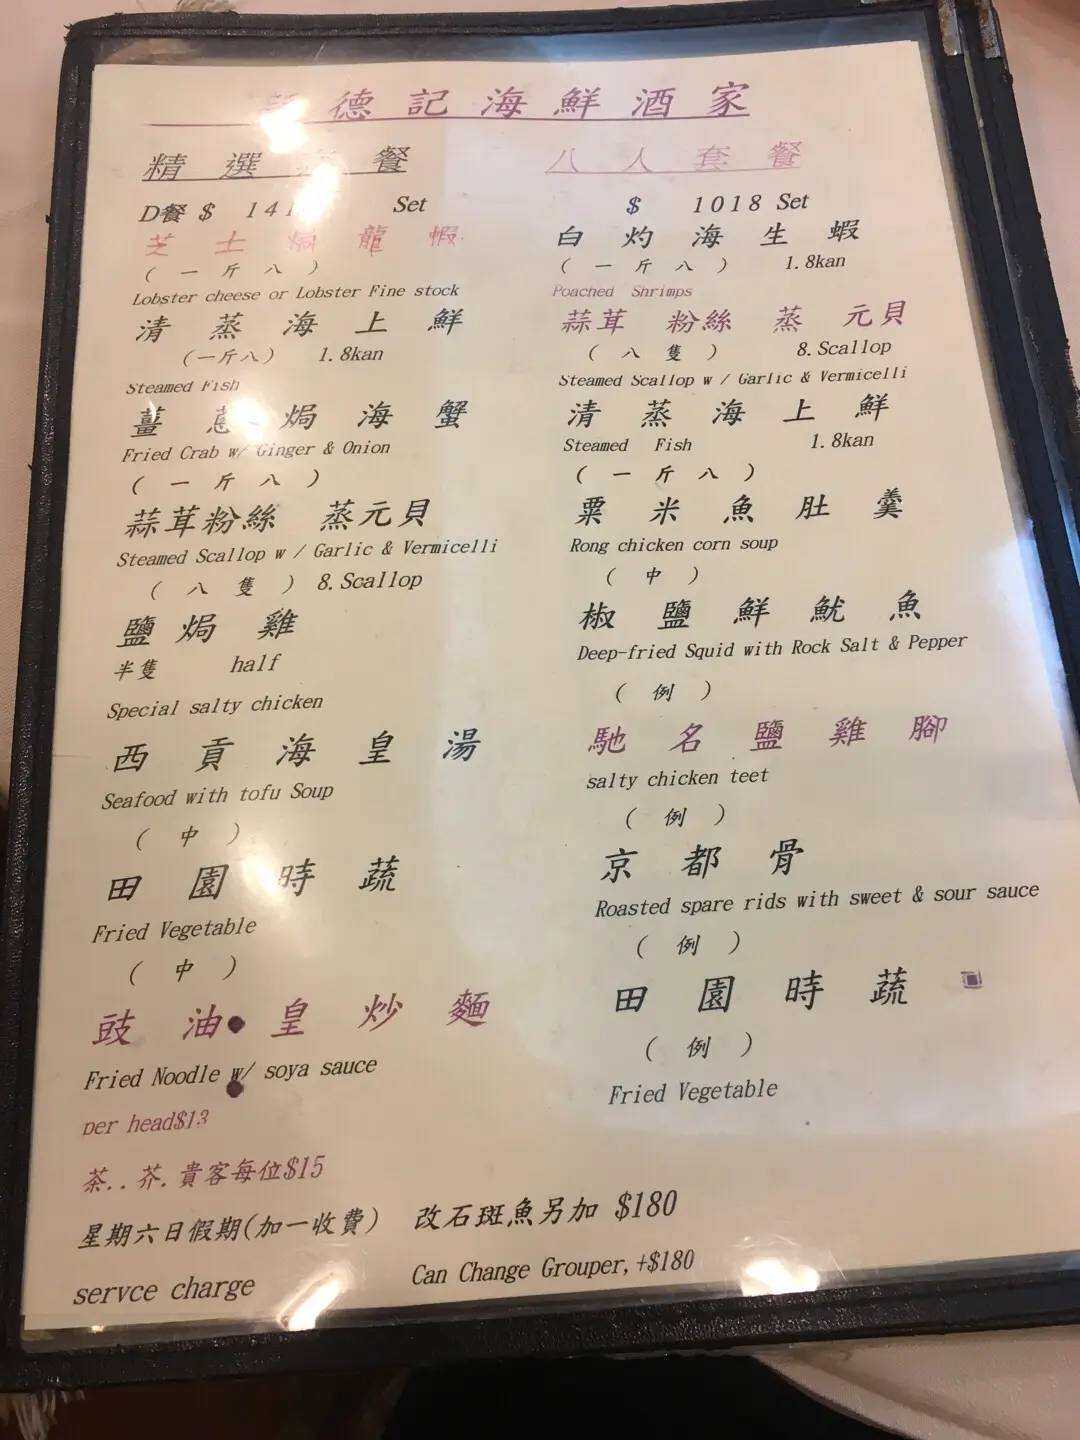 德記海鮮酒家
精選 餐
D餐 $ 141 Set
芝士焗龍蝦
(一斤八)
Lobster cheese or Lobster Fine stock
清蒸海上鮮
(一斤八) 1.8kan
Steamed Fish
薑蔥焗海蟹
Fried Crab w/ Ginger & Onion
(一斤八)
蒜茸粉絲 蒸元貝
Steamed Scallop w / Garlic & Vermicelli
(八隻) 8.Scallop
鹽焗雞
半隻 half
Special salty chicken
西貢海皇湯
Seafood with tofu Soup
(中)
田園時蔬
Fried Vegetable
(中)
豉油皇炒麵
Fried Noodle w/ soya sauce
per head$13
茶..芥.貴客每位$15
星期六日假期(加一收費)
servce charge
八人套餐
$ 1018 Set
白灼海生蝦
(一斤八) 1.8kan
Poached Shrimps
蒜茸 粉絲 蒸 元貝
(八隻) 8.Scallop
Steamed Scallop w / Garlic & Vermicelli
清蒸海上鮮
Steamed Fish 1.8kan
(一斤八)
粟米魚肚羹
Rong chicken corn soup
(中)
椒鹽鮮魷魚
Deep-fried Squid with Rock Salt & Pepper
(例)
馳名鹽雞腳
salty chicken teet
(例)
京都骨
Roasted spare rids with sweet & sour sauce
(例)
田園時蔬
(例)
Fried Vegetable
改石斑魚另加 $180
Can Change Grouper,+$180